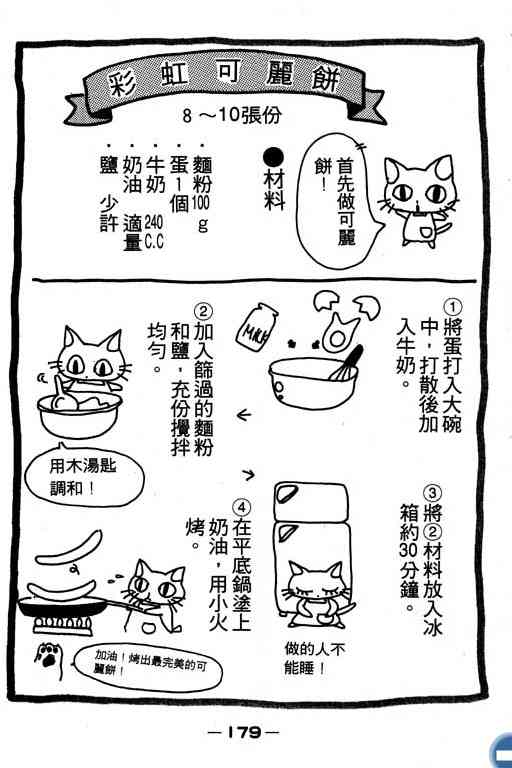 彩虹可麗餅
8～10張份
首先做可麗
餅！
●材料
・麵粉100g
・蛋1個
・牛奶 240C.C
・奶油 適量
・鹽 少許
①將蛋打入大碗
中，打散後加
入牛奶。
MILK
②加入篩過的麵粉
和鹽，充份攪拌
均勻。
用木湯匙
調和！
③將②材料放入冰
箱約30分鐘。
做的人不
能睡！
④在平底鍋塗上
奶油，用小火
烤。
加油！烤出最完美的可
麗餅！
—179—